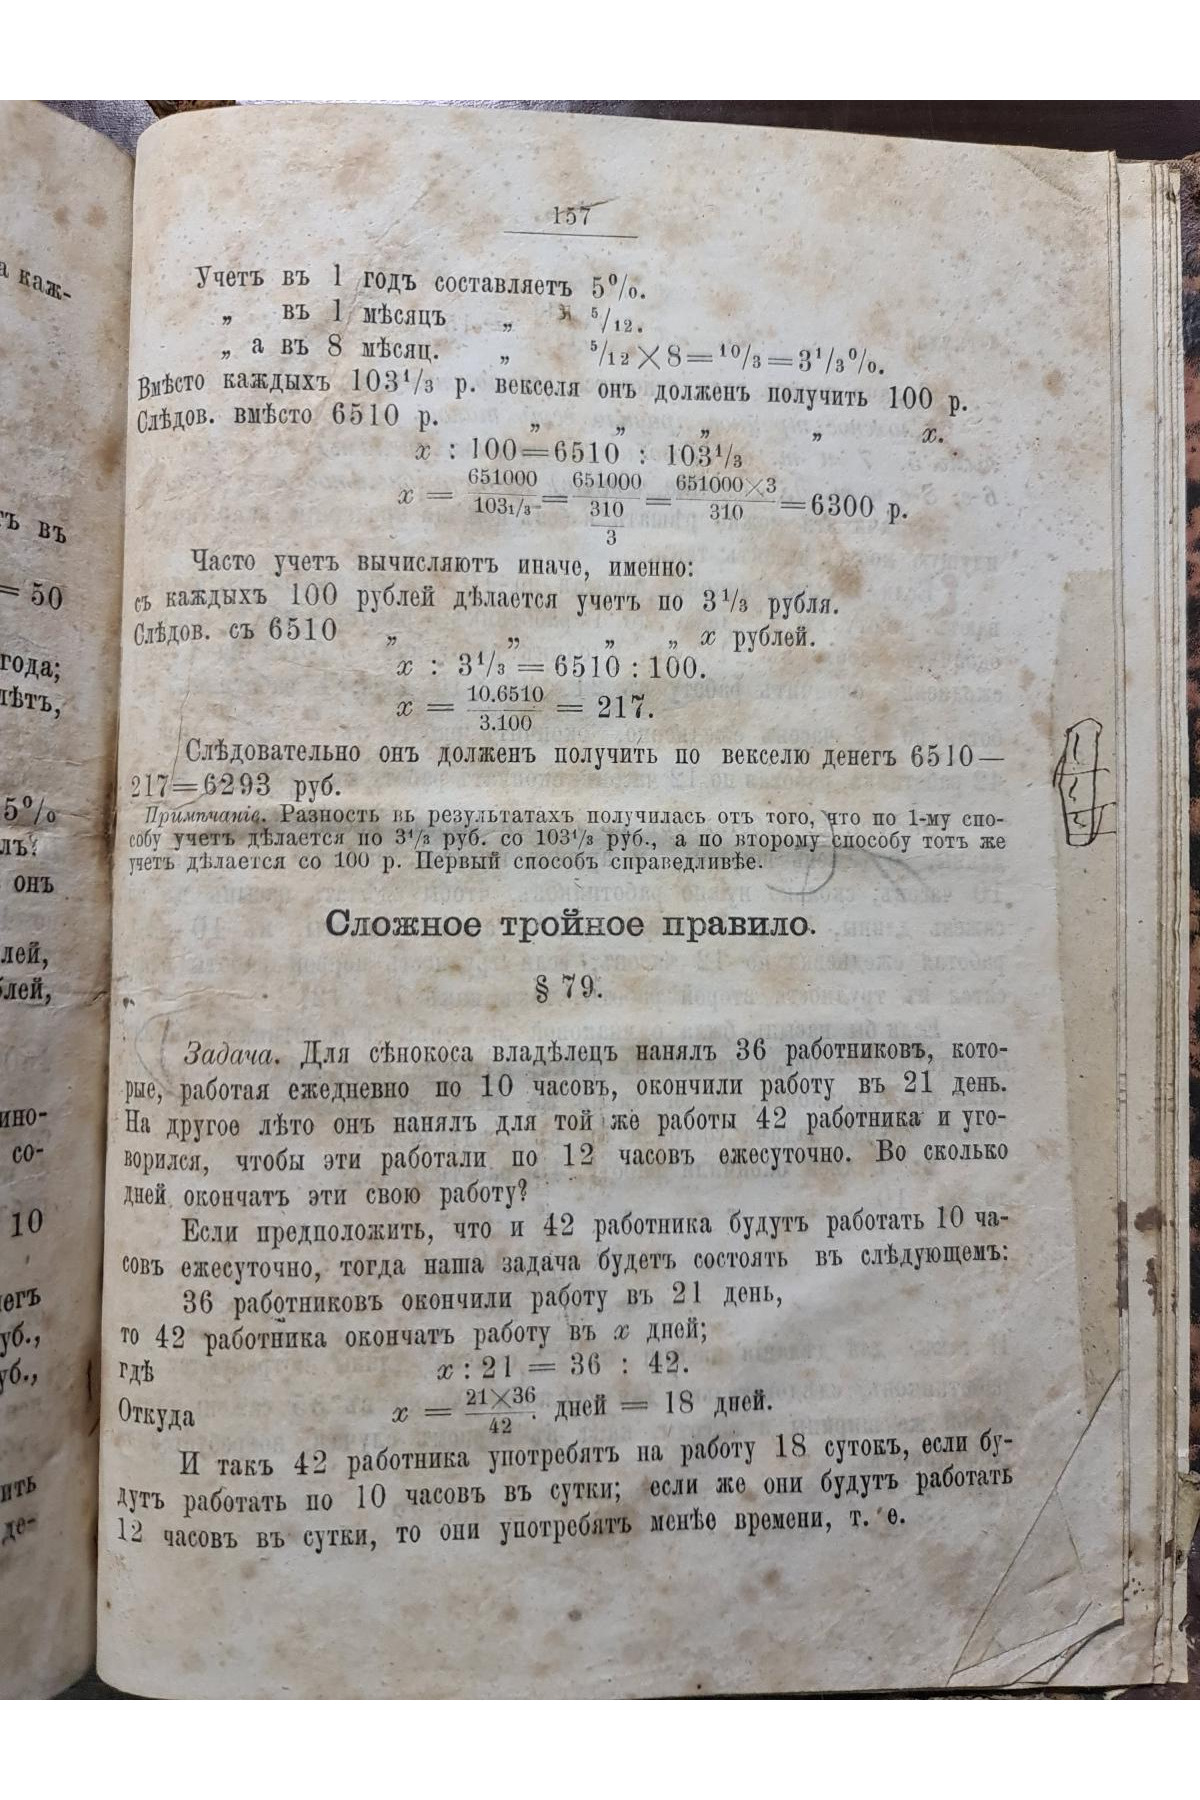 157
Учетъ въ 1 годъ составляетъ 5%.
„ въ 1 мѣсяцъ „ 5/12.
„ а въ 8 мѣсяц. „ 5/12×8=10/3=3 1/3%.
Вмѣсто каждыхъ 103 1/3 р. векселя онъ долженъ получить 100 р.
Слѣдов. вмѣсто 6510 р. „ „ „ „ x.
x : 100=6510 : 103 1/3
x = 651000/(103 1/3) = 651000/(310/3) = 651000×3/310 =6300 р.
Часто учетъ вычисляютъ иначе, именно:
съ каждыхъ 100 рублей дѣлается учетъ по 3 1/3 рубля.
Слѣдов. съ 6510 „ „ „ „ x рублей.
x : 3 1/3 = 6510 : 100.
x = 10.6510/3.100 = 217.
Слѣдовательно онъ долженъ получить по векселю денегъ 6510—
217=6293 руб.
Примѣчаніе. Разность въ результатахъ получилась отъ того, что по 1-му спо-
собу учетъ дѣлается по 3 1/3 руб. со 103 1/3 руб., а по второму способу тотъ же
учетъ дѣлается со 100 р. Первый способъ справедливѣе.
Сложное тройное правило.
§ 79.
Задача. Для сѣнокоса владѣлецъ нанялъ 36 работниковъ, кото-
рые, работая ежедневно по 10 часовъ, окончили работу въ 21 день.
На другое лѣто онъ нанялъ для той же работы 42 работника и уго-
ворился, чтобы эти работали по 12 часовъ ежесуточно. Во сколько
дней окончатъ эти свою работу?
Если предположить, что и 42 работника будутъ работать 10 ча-
совъ ежесуточно, тогда наша задача будетъ состоять въ слѣдующемъ:
36 работниковъ окончили работу въ 21 день,
то 42 работника окончатъ работу въ x дней;
гдѣ x : 21 = 36 : 42.
Откуда x = 21×36/42 дней = 18 дней.
И такъ 42 работника употребятъ на работу 18 сутокъ, если бу-
дутъ работать по 10 часовъ въ сутки; если же они будутъ работать
12 часовъ въ сутки, то они употребятъ менѣе времени, т. е.
а каж-
въ
= 50
года;
лѣтъ,
5%
онъ
лей,
блей,
ино-
со-
10
уб.,
уб.,
ить
де-